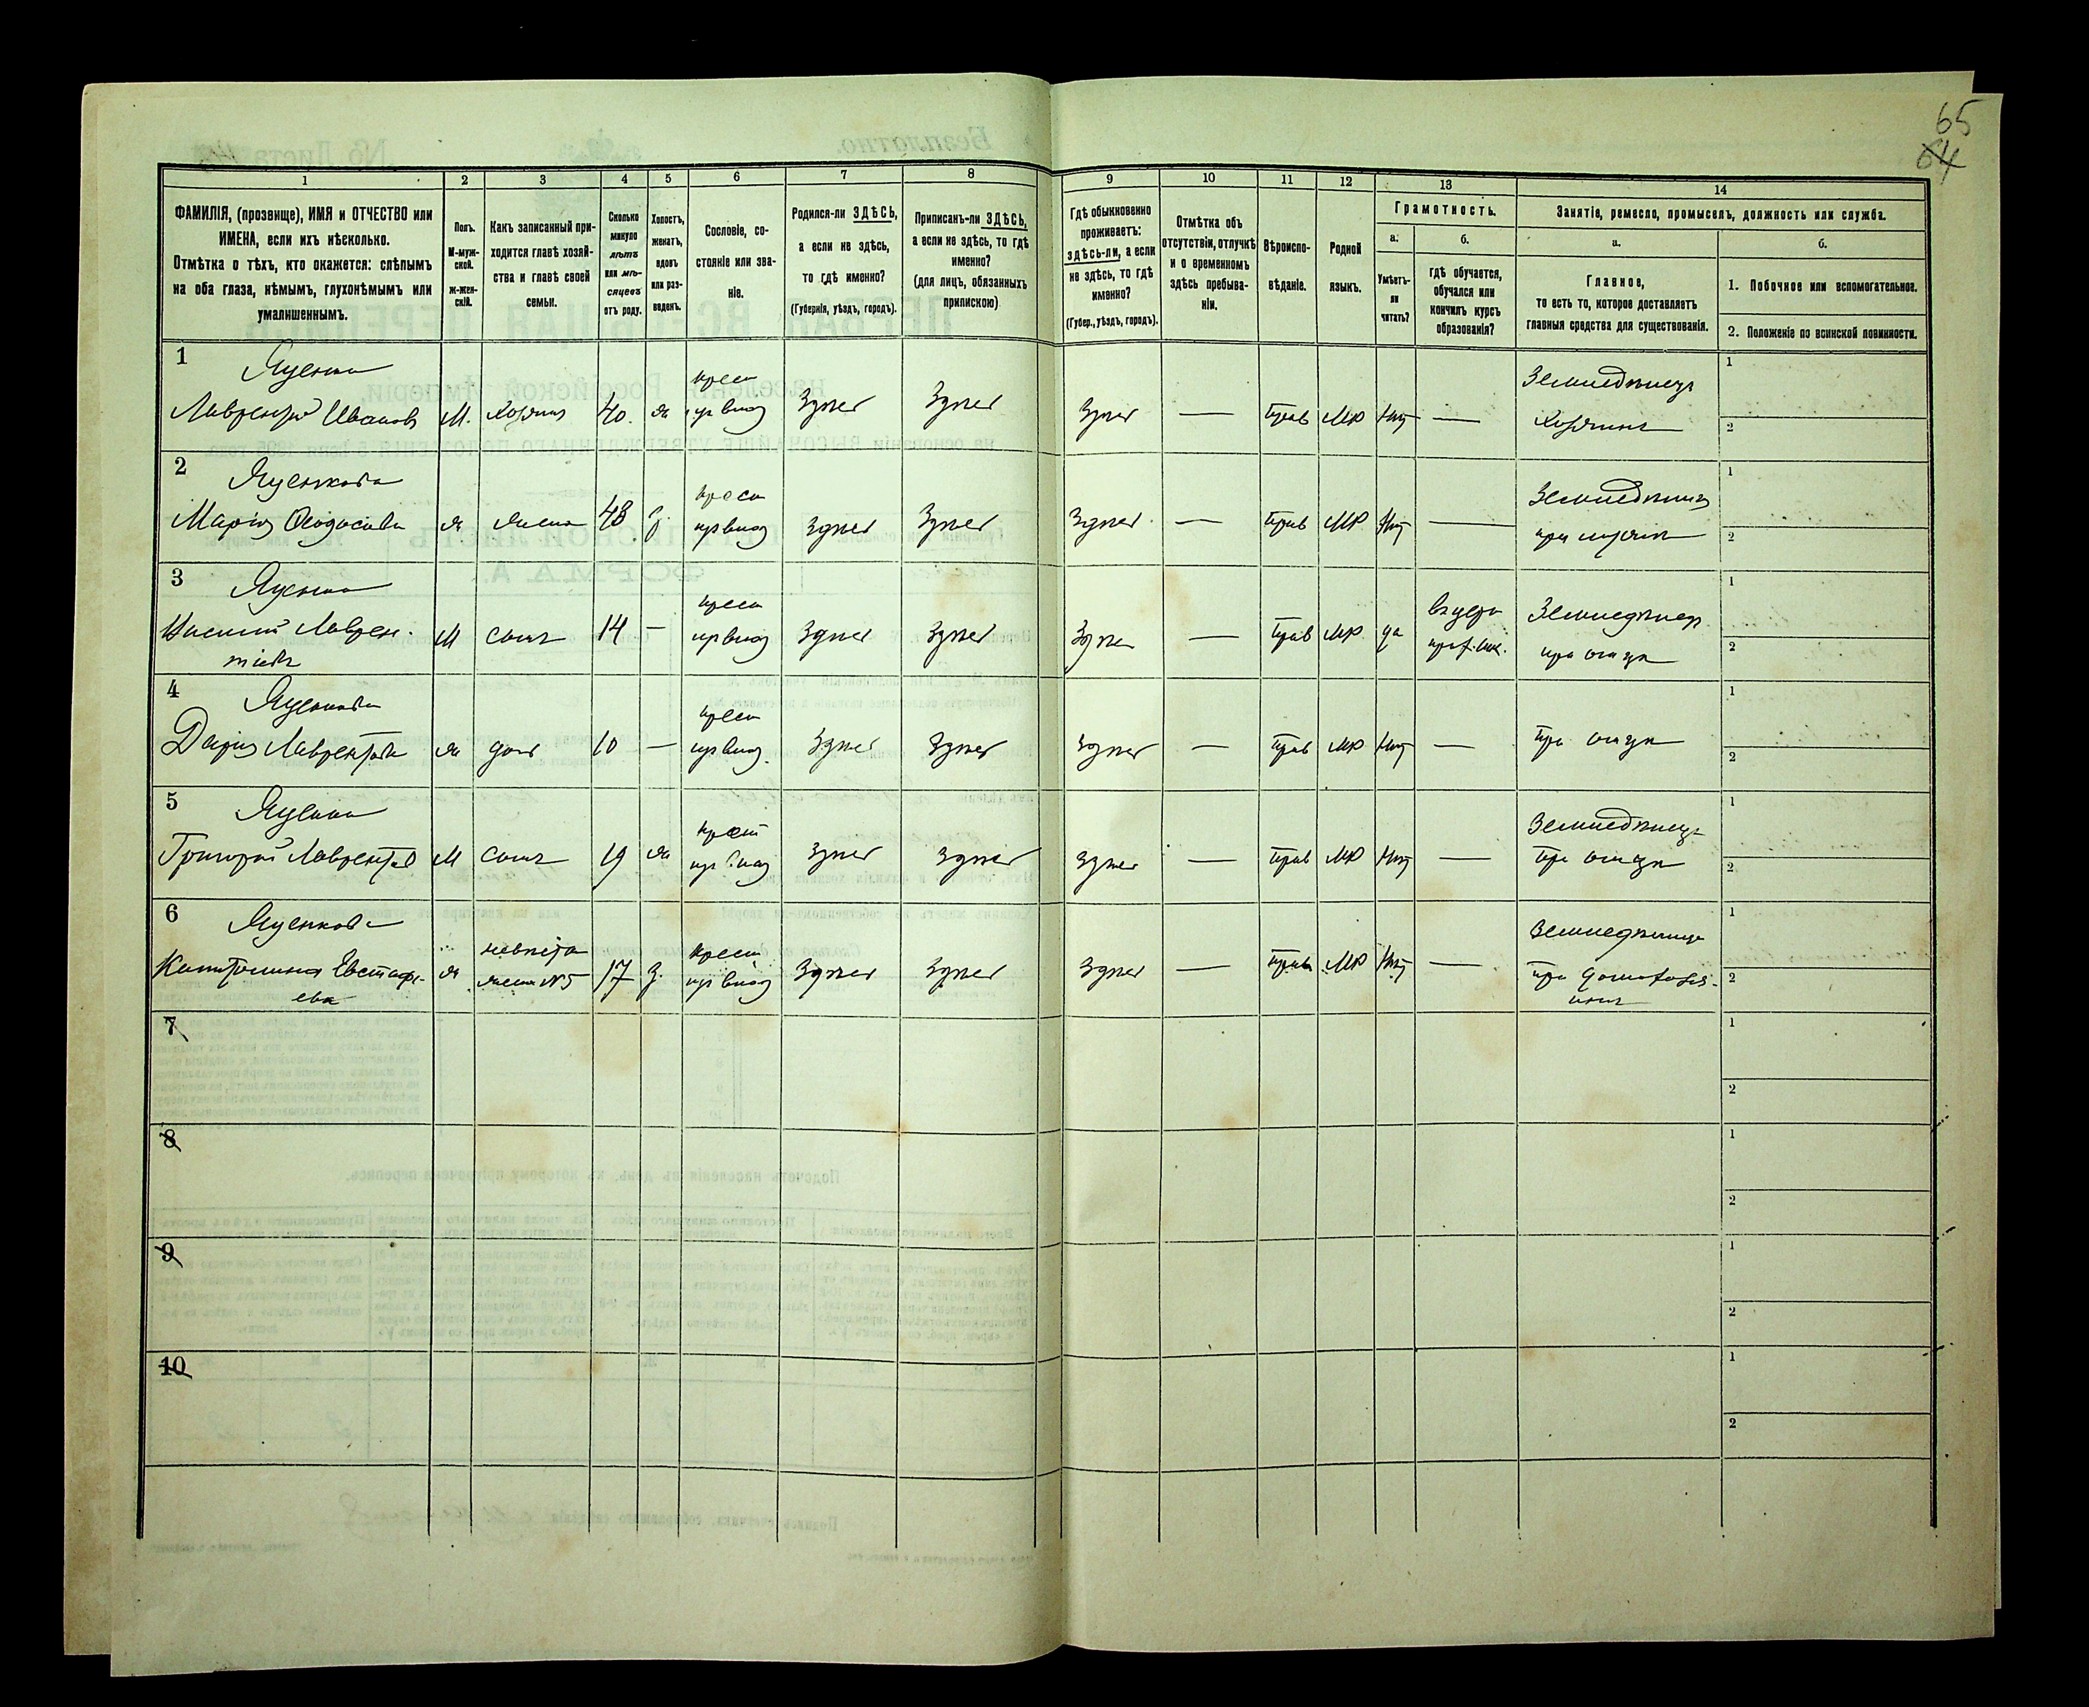 65
64
1
2
3
4
5
6
7
8
9
10
11
12
13
14
ФАМИЛІЯ, (прозвище), ИМЯ и ОТЧЕСТВО или
ИМЕНА, если ихъ нѣсколько.
Отмѣтка о тѣхъ, кто окажется: слѣпымъ
на оба глаза, нѣмымъ, глухонѣмымъ или
умалишеннымъ.
Полъ.
М-муж-
ской.
ж-жен-
скій.
Какъ записанный при-
ходится главѣ хозяй-
ства и главѣ своей
семьи.
Сколько
минуло
лѣтъ
или мѣ-
сяцевъ
отъ роду.
Холостъ,
женатъ,
вдовъ
или раз-
веденъ.
Сословіе, со-
стояніе или зва-
ніе.
Родился-ли ЗДѢСЬ,
а если не здѣсь,
то гдѣ именно?
(Губернія, уѣздъ, городъ).
Приписанъ-ли ЗДѢСЬ,
а если не здѣсь, то гдѣ
именно?
(для лицъ, обязанныхъ
припискою)
Гдѣ обыкновенно
проживаетъ:
здѣсь-ли, а если
не здѣсь, то гдѣ
именно?
(Губер., уѣздъ, городъ).
Отмѣтка объ
отсутствіи, отлучкѣ
и о временномъ
здѣсь пребыва-
ніи.
Вѣроиспо-
вѣданіе.
Родной
языкъ.
Грамотность.
а.
Умѣетъ-
ли
читать?
б.
гдѣ обучается,
обучался или
кончилъ курсъ
образованія?
Занятіе, ремесло, промыселъ, должность или служба.
а.
Главное,
то есть то, которое доставляетъ
главныя средства для существованія.
б.
1. Побочное или вспомогательное.
2. Положеніе по воинской повинности.
1
Яценко
Лаврентій Ивановъ
М.
Хозяинъ
40.
ж
крест
Здѣсь
Здѣсь
Здѣсь
—
Прав
МР
Нѣт
—
Земледѣлецъ
Хозяинъ
1
2
2
Яценкова
Марія Ѳеодосіева
ж
жена
48
з.
крест
Здѣсь
Здѣсь
Здѣсь
—
Прав
МР
Нѣт
—
1
2
3
Яценко
Василій Лаврен.
тіевъ
М
сынъ
14
—
крест
Здѣсь
Здѣсь
Здѣсь
—
Прав
МР
да
Земледѣлец
при отцѣ
1
2
4
Яценкова
Дарія Лаврентіева
ж
доч
10
—
крест
Здѣсь
Здѣсь
Здѣсь
—
Прав
МР
Нѣт
—
При отцѣ
1
2
5
Яценко
Григорій Лаврентіев
М
сынъ
19
ж
крест
Здѣсь
Здѣсь
Здѣсь
—
Прав
МР
Нѣт
—
Земледѣлецъ
При отцѣ
1
2
6
Яценкова
Капитолина Евстафі-
ева
ж
невѣста
жена №5
17
з.
крест
Здѣсь
Здѣсь
Здѣсь
—
Прав
МР
Нѣт
—
При домохозя-
инѣ
1
2
7
1
2
8
1
2
9
1
2
10
1
2